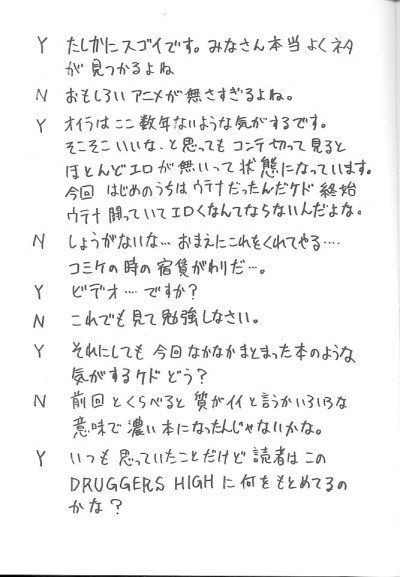 Y たしかにスゴイです。みなさん本当よくネタ
が見つかるよね
N おもしろいアニメが無さすぎるよね。
Y オイラはここ数年ないような気がするです。
そこそこいいな、と思ってもコンテ切って見ると
ほとんどエロが無いって状態になっています。
今回 はじめのうちはウテナだったんだケド 終始
ウテナ闘っていてエロくなんてならないんだよな。
N しょうがないな…おまえにこれをくれてやる‥‥
コミケの時の宿賃がわりだ…。
Y ビデオ‥‥ですか?
N これでも見て勉強しなさい。
Y それにしても今回なかなかまとまった本のような
気がするケドどう?
N 前回とくらべると質がイイと言うかいろいろな
意味で濃い本になったんじゃないかな。
Y いつも思っていたことだけど読者はこの
DRUGGERS HIGHに何をもとめてるの
かな?